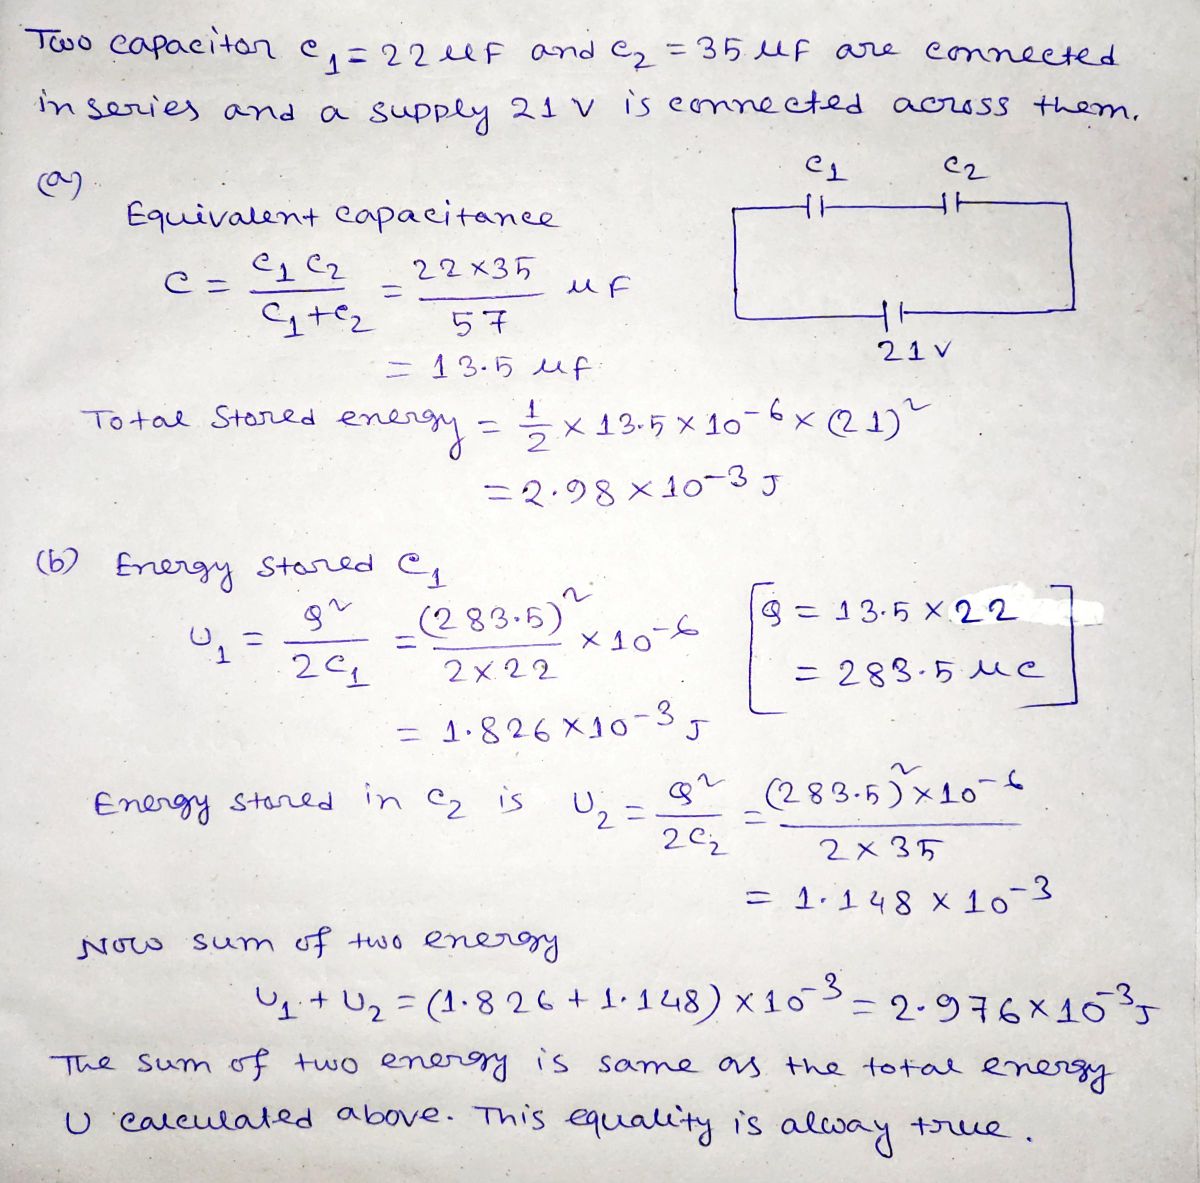 Two capacitor C₁ = 22 μF and C₂ = 35 μF are connected
in series and a supply 21 V is connected across them.
(a)
C₁ C₂
Equivalent capacitance
C = C₁ C₂ / C₁ + C₂ = 22 × 35 / 57 μF
= 13.5 μF
21 V
Total Stored energy = 1/2 × 13.5 × 10⁻⁶ × (21)²
= 2.98 × 10⁻³ J
(b) Energy stored C₁
U₁ = Q² / 2C₁ = (283.5)² / 2 × 22 × 10⁻⁶
[Q = 13.5 × 22
= 283.5 μC]
= 1.826 × 10⁻³ J
Energy stored in C₂ is U₂ = Q² / 2C₂ = (283.5)² × 10⁻⁶ / 2 × 35
= 1.148 × 10⁻³
Now sum of two energy
U₁ + U₂ = (1.826 + 1.148) × 10⁻³ = 2.976 × 10⁻³ J
The sum of two energy is same as the total energy
U calculated above. This equality is alway true.